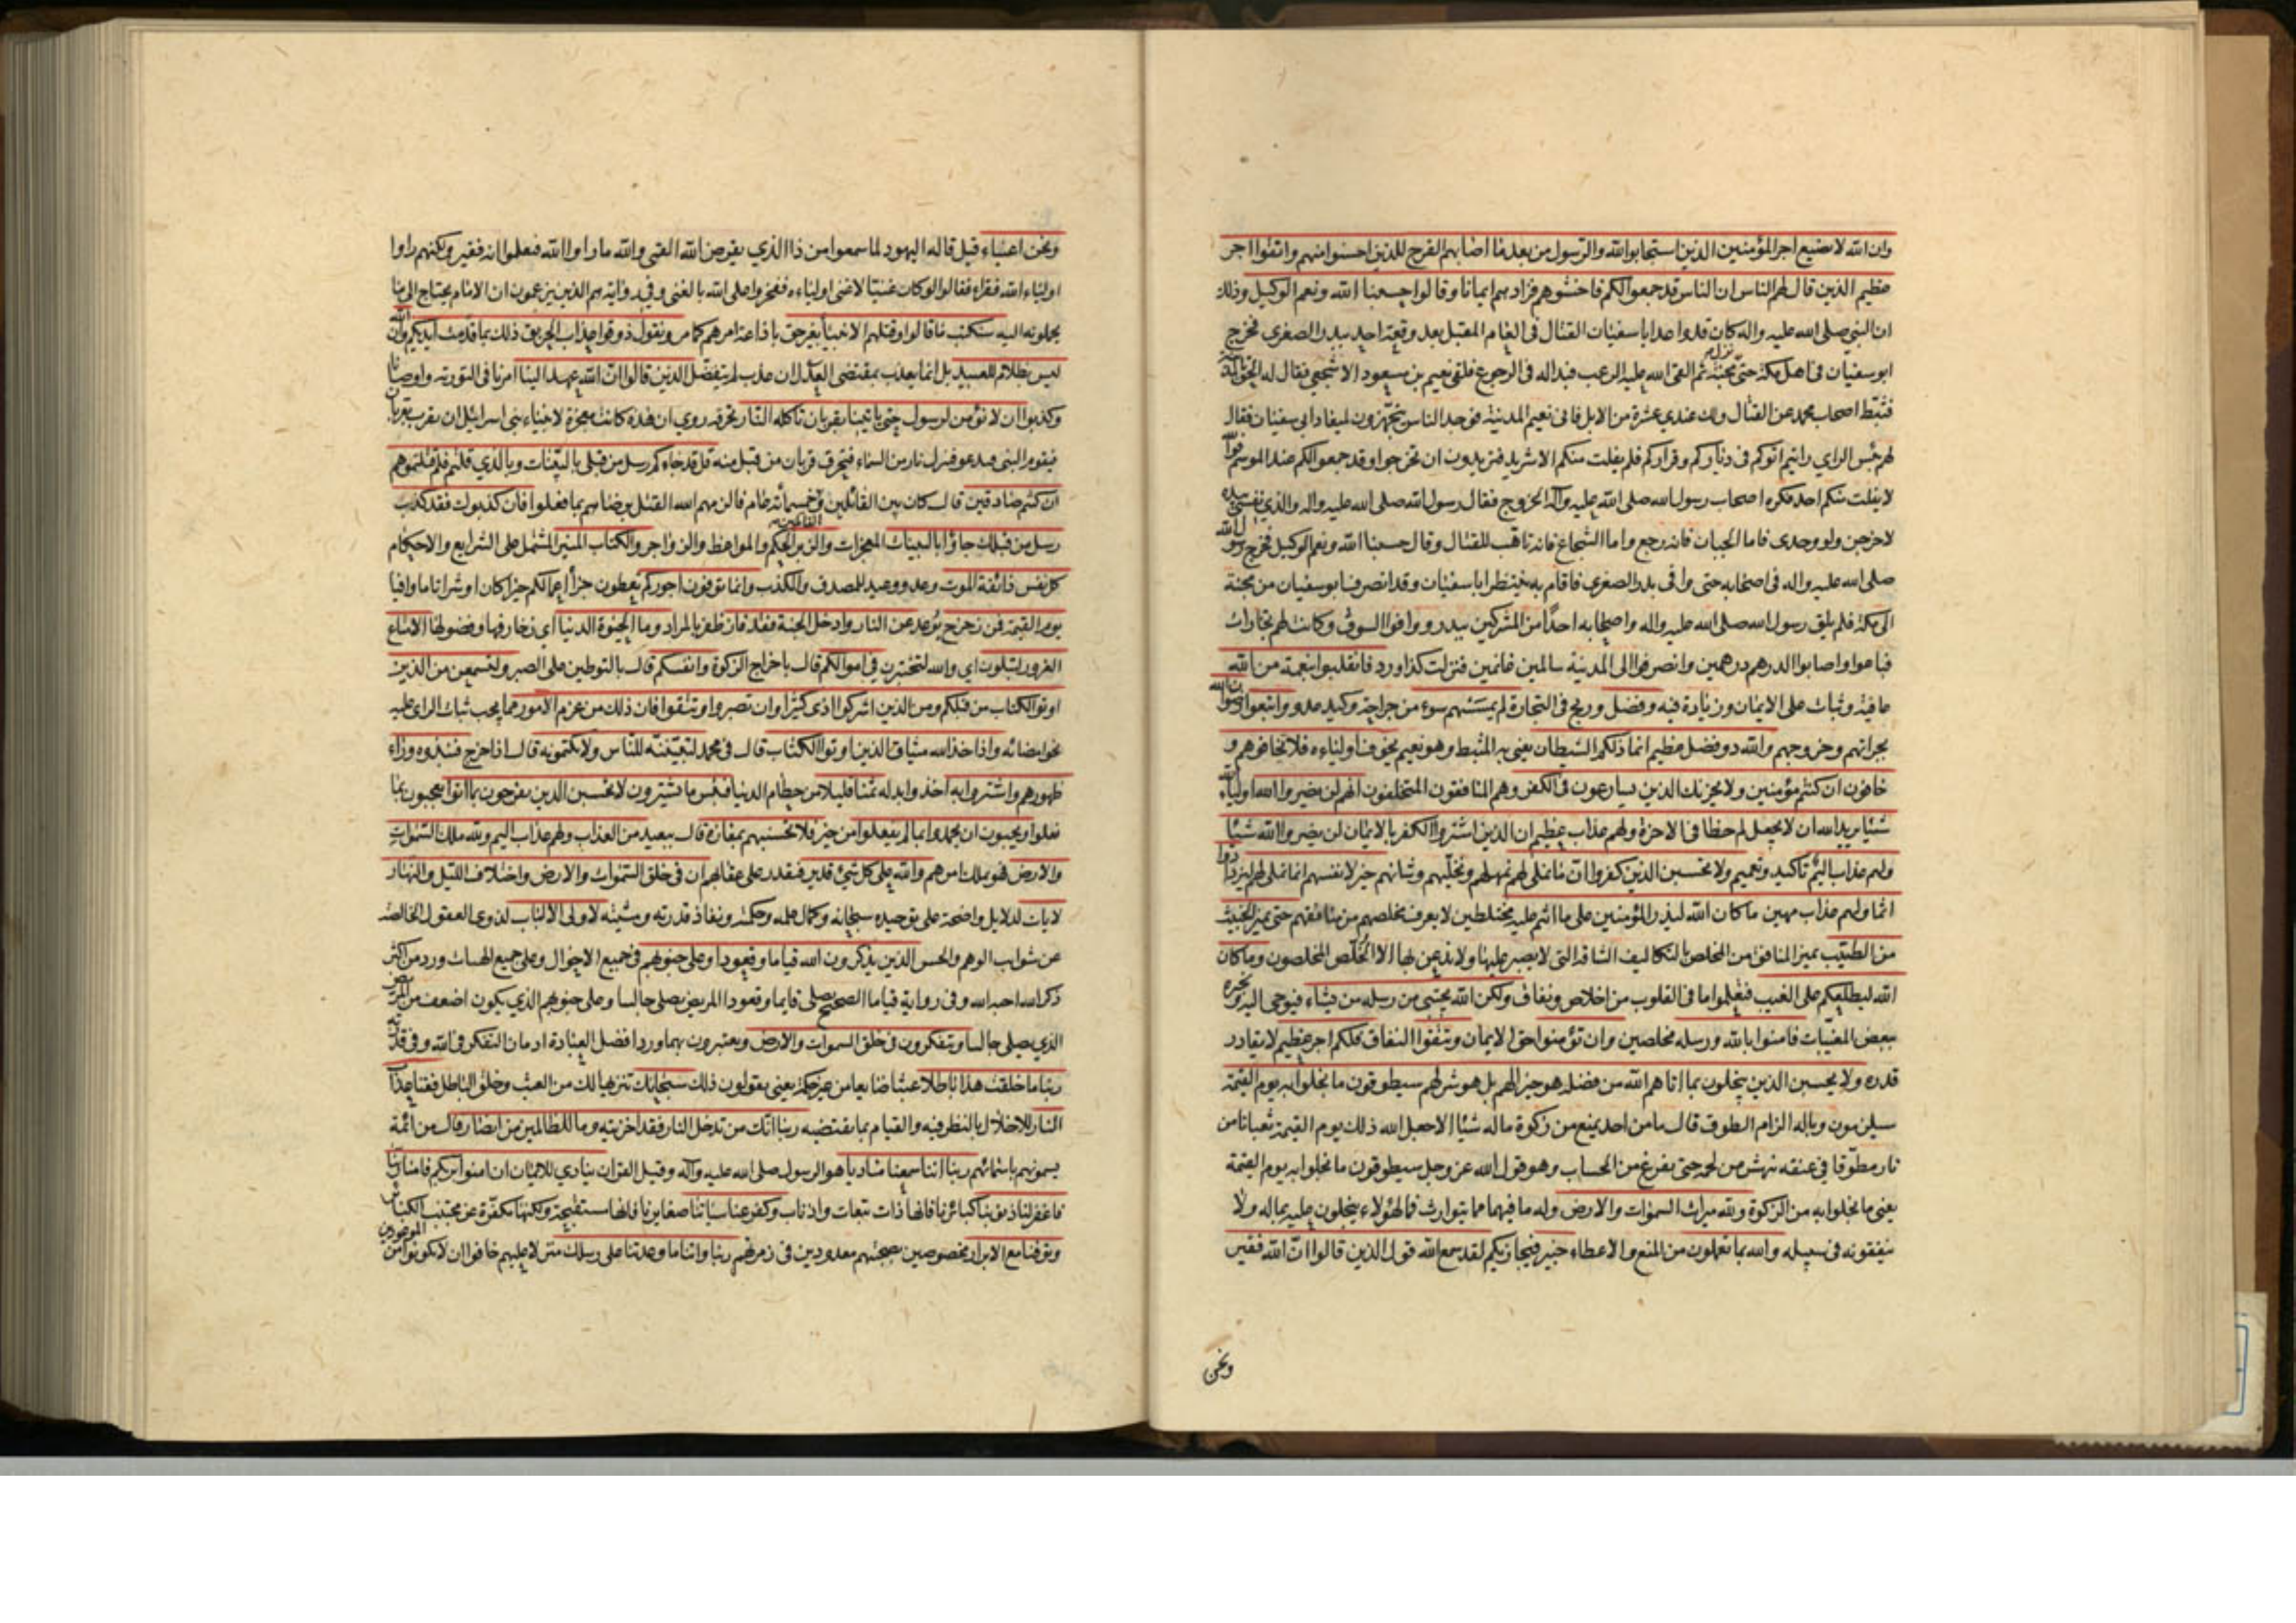 وان الله لا يضيع اجر المؤمنين الذين استجابوا لله والرسول من بعد ما اصابهم القرح للذين احسنوا منهم واتقوا اجر
عظيم الذين قال لهم الناس ان الناس قد جمعوا لكم فاخشوهم فزادهم ايمانا وقالوا حسبنا الله ونعم الوكيل وذلك
ان النبي صلى الله عليه واله كان قد واعد ابا سفيان القتال في العام المقبل بعد وقعة احد ببدر الصغرى فخرج
ابو سفيان في اهل مكة حتى نزل مجنة ثم القى الله عليه الرعب فبدا له في الرجوع فلقى نعيم بن مسعود الاشجعي فقال له الحق بالمدينة
فثبط اصحاب محمد عن القتال ولك عندي عشرة من الابل فاتى نعيم المدينة فوجد الناس يتجهزون لميعاد ابي سفيان فقال
لهم بئس الراي رايتم اتوكم في دياركم وقراركم فلم يفلت منكم الا شريد فتريدون ان تخرجوا وقد جمعوا لكم عند الموسم فوالله
لا يفلت منكم احد فكره اصحاب رسول الله صلى الله عليه وآله الخروج فقال رسول الله صلى الله عليه واله والذي نفسي بيده
لاخرجن ولو وحدى فاما الجبان فانه رجع واما الشجاع فانه تاهب للقتال وقال حسبنا الله ونعم الوكيل فخرج رسول الله
صلى الله عليه واله في اصحابه حتى وافى بدر الصغرى فاقام به ينتظر ابا سفيان وقد انصرف ابو سفيان من مجنة
الى مكة فلم يلق رسول الله صلى الله عليه واله واصحابه احدًا من المشركين ببدر ووافوا السوق وكانت لهم تجارات
فباعوا واصابوا الدرهم درهمين وانصرفوا الى المدينة سالمين غانمين فنزلت كذا ورد فانقلبوا بنعمة من الله
عافية وثبات على الايمان وزيادة فيه وفضل وربح في التجارة لم يمسسهم سوء من جراحة وكيد عدو واتبعوا رضوان الله
بجراتهم وخروجهم والله ذو فضل عظيم انما ذلكم الشيطان يعني به المثبط وهو نعيم يخوف اولياءه فلا تخافوهم و
خافون ان كنتم مؤمنين ولا يحزنك الذين يسارعون في الكفر وهم المنافقون المتخلفون انهم لن يضروا الله اولياء الله
شيئا يريد الله ان لا يجعل لهم حظا في الاخرة ولهم عذاب عظيم ان الذين اشتروا الكفر بالايمان لن يضروا الله شيئا
ولهم عذاب اليم تاكيد وتعميم ولا تحسبن الذين كفروا ان ما نملى لهم نمهلهم ونخليهم وشانهم خير لانفسهم انما نملى لهم ليزدادوا
اثما ولهم عذاب مهين ما كان الله ليذر المؤمنين على ما انتم عليه مختلطين لا يعرف مخلصهم من منافقهم حتى يميز الخبيث
من الطيب يميز المنافق من المخلص بالتكاليف الشاقة التي لا يصبر عليها ولا يذعن لها الا الخلص المخلصون وما كان
الله ليطلعكم على الغيب فتعلموا ما في القلوب من اخلاص ونفاق ولكن الله يجتبي من رسله من يشاء فيوحى اليه ويخبره
ببعض المغيبات فامنوا بالله ورسله مخلصين وان تؤمنوا حق الايمان وتتقوا النفاق فلكم اجر عظيم لا يقادر
قدره ولا يحسبن الذين يبخلون بما اتاهم الله من فضله هو خير لهم بل هو شر لهم سيطوقون ما بخلوا به يوم القيمة
سيلزمون وباله الزام الطوق قال ما من احد يمنع من زكوة ماله شيئا الا جعل الله ذلك يوم القيمة ثعبانا من
نار مطوقا في عنقه ينهش من لحمه حتى يفرغ من الحساب وهو قول الله عز وجل سيطوقون ما بخلوا به يوم القيمة
يعني ما بخلوا به من الزكوة ولله ميراث السموات والارض وله ما فيهما مما يتوارث فما لهؤلاء يبخلون عليه بماله ولا
ينفقونه في سبيله والله بما تعملون من المنع والاعطاء خبير فيجازيكم لقد سمع الله قول الذين قالوا ان الله فقير
ونحن
ونحن اغنياء قيل قاله اليهود لما سمعوا من ذا الذي يقرض الله القمى والله ما راوا الله فيعلموا انه فقير ولكنهم راوا
اولياء الله فقراء فقالوا لو كان غنيا لاغنى اولياءه ففخروا على الله بالغنى وفي رواية هم الذين يزعمون ان الامام يحتاج الى ما
يحملونه اليه سنكتب ما قالوا وقتلهم الانبياء بغير حق باذاعة امرهم كما مر ونقول ذوقوا عذاب الحريق ذلك بما قدمت ايديكم وان الله
ليس بظلام للعبيد بل انما يعذب بمقتضى العدل ان عذب لم يتفضل الذين قالوا ان الله عهد الينا امرنا في التورية واوصانا
وكذبوا ان لا نؤمن لرسول حتى ياتينا بقربان تاكله النار تحرقه روي ان هذه كانت معجزة لانبياء بني اسرائيل ان يقرب بقربان
فيقوم النبي فيدعو فينزل نار من السماء فتحرق قربان من قبل منه قل قد جاءكم رسل من قبلى بالبينات وبالذي قلتم فلم قتلتموهم
ان كنتم صادقين قال كان بين القائلين والقاتلين خمسمائة عام فالزمهم الله القتل برضاهم بما فعلوا فان كذبوك فقد كذب
رسل من قبلك جاؤا بالبينات المعجزات والزبر الحكم والمواعظ والزواجر والكتاب المنير المشتمل على الشرايع والاحكام
كل نفس ذائقة الموت وعد ووعيد للمصدق والكذب وانما توفون اجوركم تعطون جزاء اعمالكم خيرا كان او شرا تاما وافيا
يوم القيمة فمن زحزح بوعد عن النار وادخل الجنة فقد فاز ظفر بالمراد وما الحيوة الدنيا اي زخارفها وفضولها الا متاع
الغرور لتبلون اي والله لتختبرن في اموالكم قال باخراج الزكوة وانفسكم قال بالتوطين على الصبر ولتسمعن من الذين
اوتوا الكتاب من قبلكم ومن الذين اشركوا اذى كثيرا وان تصبروا وتتقوا فان ذلك من عزم الامور مما يجب ثبات الراى عليه
نحو امضائه واذ اخذ الله ميثاق الذين اوتوا الكتاب قال في محمد لتبيننه للناس ولا تكتمونه قال اذا خرج فنبذوه وراء
ظهورهم واشتروا به اخذوا بدله ثمنا قليلا من حطام الدنيا فبئس ما يشترون لا تحسبن الذين يفرحون بما اتوا يعجبون بما
فعلوا ويحبون ان يحمدوا بما لم يفعلوا من خير فلا تحسبنهم بمفازة قال ببعيد من العذاب ولهم عذاب اليم ولله ملك السموات
والارض فهو يملك امرهم والله على كل شئ قدير فيقدر على عقابهم ان في خلق السموات والارض واختلاف الليل والنهار
لايات لدلايل واضحة على توحيده سبحانه وكمال علمه وحكمته ونفاذ قدرته ومشيته لاولى الالباب لذوي العقول الخالصة
عن شوايب الوهم والحس الذين يذكرون الله قياما وقعودا وعلى جنوبهم في جميع الاحوال وعلى جميع الهيئات ورد من اكثر
ذكر الله احبه الله وفي رواية قياما الصحيح يصلى قايما وقعودا المريض يصلى جالسا وعلى جنوبهم الذي يكون اضعف من المريض
الذي يصلى جالسا ويتفكرون في خلق السموات والارض ويعتبرون بهما ورد افضل العبادة ادمان التفكر في الله وفي قدرته
ربنا ما خلقت هذا باطلا عبثا ضايعا من غير حكمة يعني يقولون ذلك سبحانك تنزيها لك من العبث وخلق الباطل فقنا عذاب
النار للاخلال بالنظر فيه والقيام بما يقتضيه ربنا انك من تدخل النار فقد اخزيته وما للظالمين من انصار قال من ائمة
يسمونهم باسمائهم ربنا اننا سمعنا مناديا هو الرسول صلى الله عليه وآله وقيل القران ينادي للايمان ان امنوا بربكم فامنا ربنا
فاغفر لنا ذنوبنا كبائرنا فانها ذات تبعات واذناب وكفر عنا سيئاتنا صغايرنا فانها مستقبحة ولكنها مكفرة عن مجتنب الكبائر
وتوفنا مع الابرار مخصوصين بصحبتهم معدودين في زمرتهم ربنا واتنا ما وعدتنا على رسلك منزلا عليهم خافوا ان لا يكونوا من الموعودين